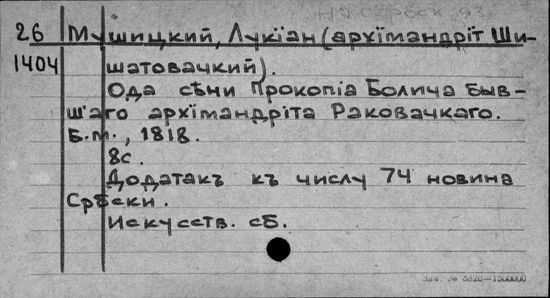 На сербск. яз.
26 Мушицкий, Лукїан (архїмандрїт Ши-
1404 шатовачкий).
Ода сѣни Прокопїа Болича быв-
шаго архїмандрїта Раковачкаго.
Б.м., 1818.
8с.
Додатакъ къ числу 74 новина
Србски.
Искусств. сб.
Зак. № 3820—1500000